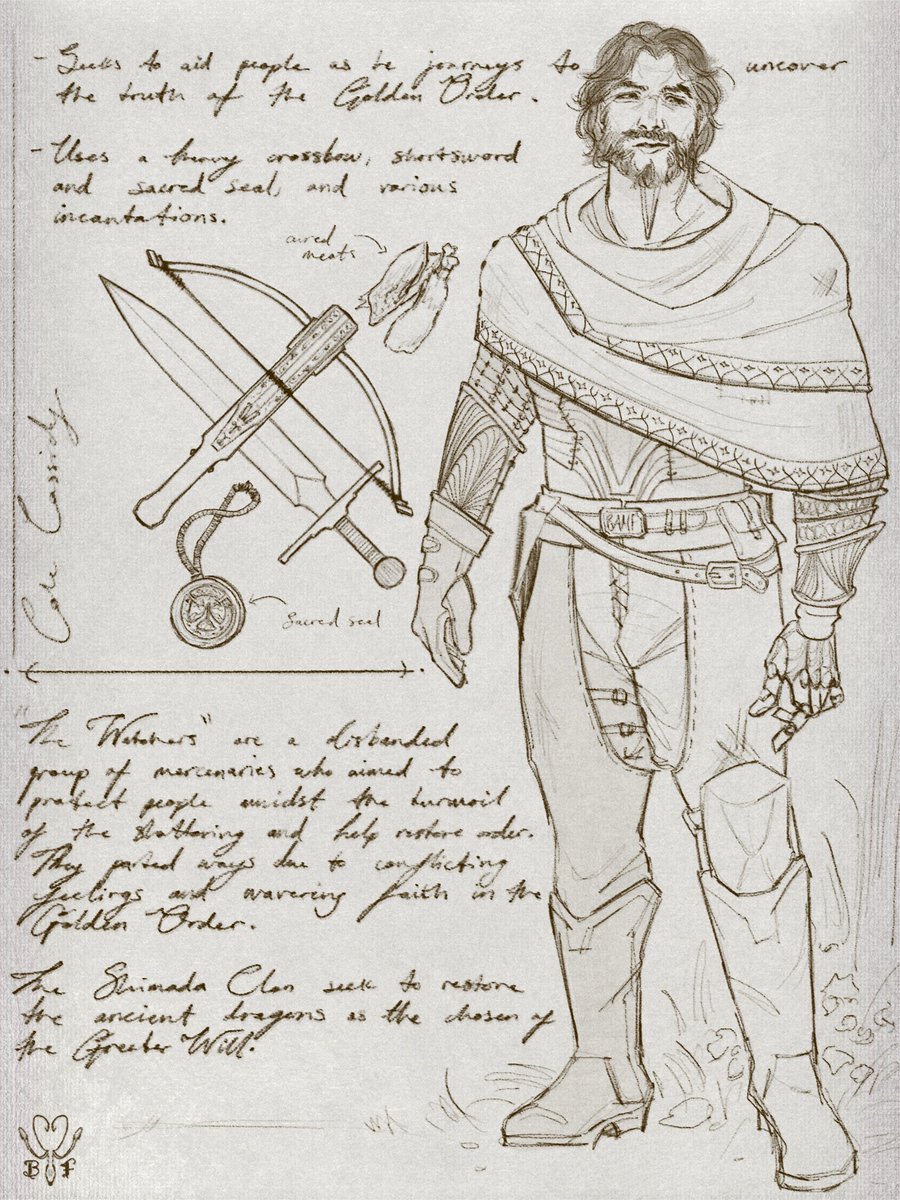 - Seeks to aid people as he journeys to uncover
the truth of the Golden Order.
- Uses a heavy crossbow, shortsword
and sacred seal, and various
incantations.
aired
meats
Cole Cassidy
BAMF
Sacred seal
"The Watchers" are a disbanded
group of mercenaries who aimed to
protect people amidst the turmoil
of the Shattering and help restore order.
They parted ways due to conflicting
feelings and wavering faith in the
Golden Order.
The Shimada Clan seek to restore
the ancient dragons as the chosen of
the Greater Will.
B F